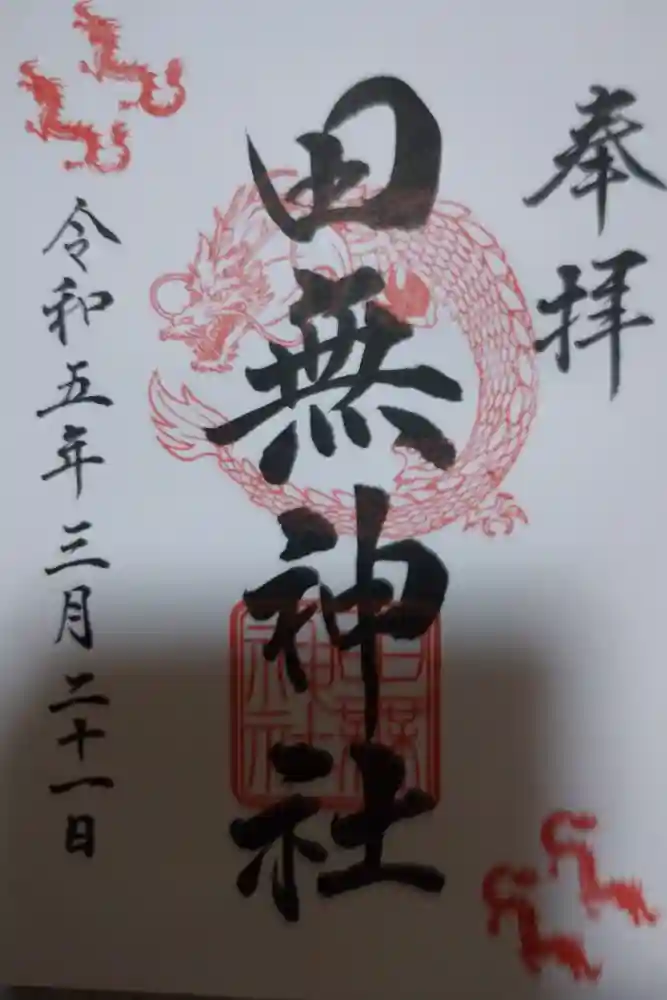 奉拝
田無神社
田無神社
令和五年三月二十一日